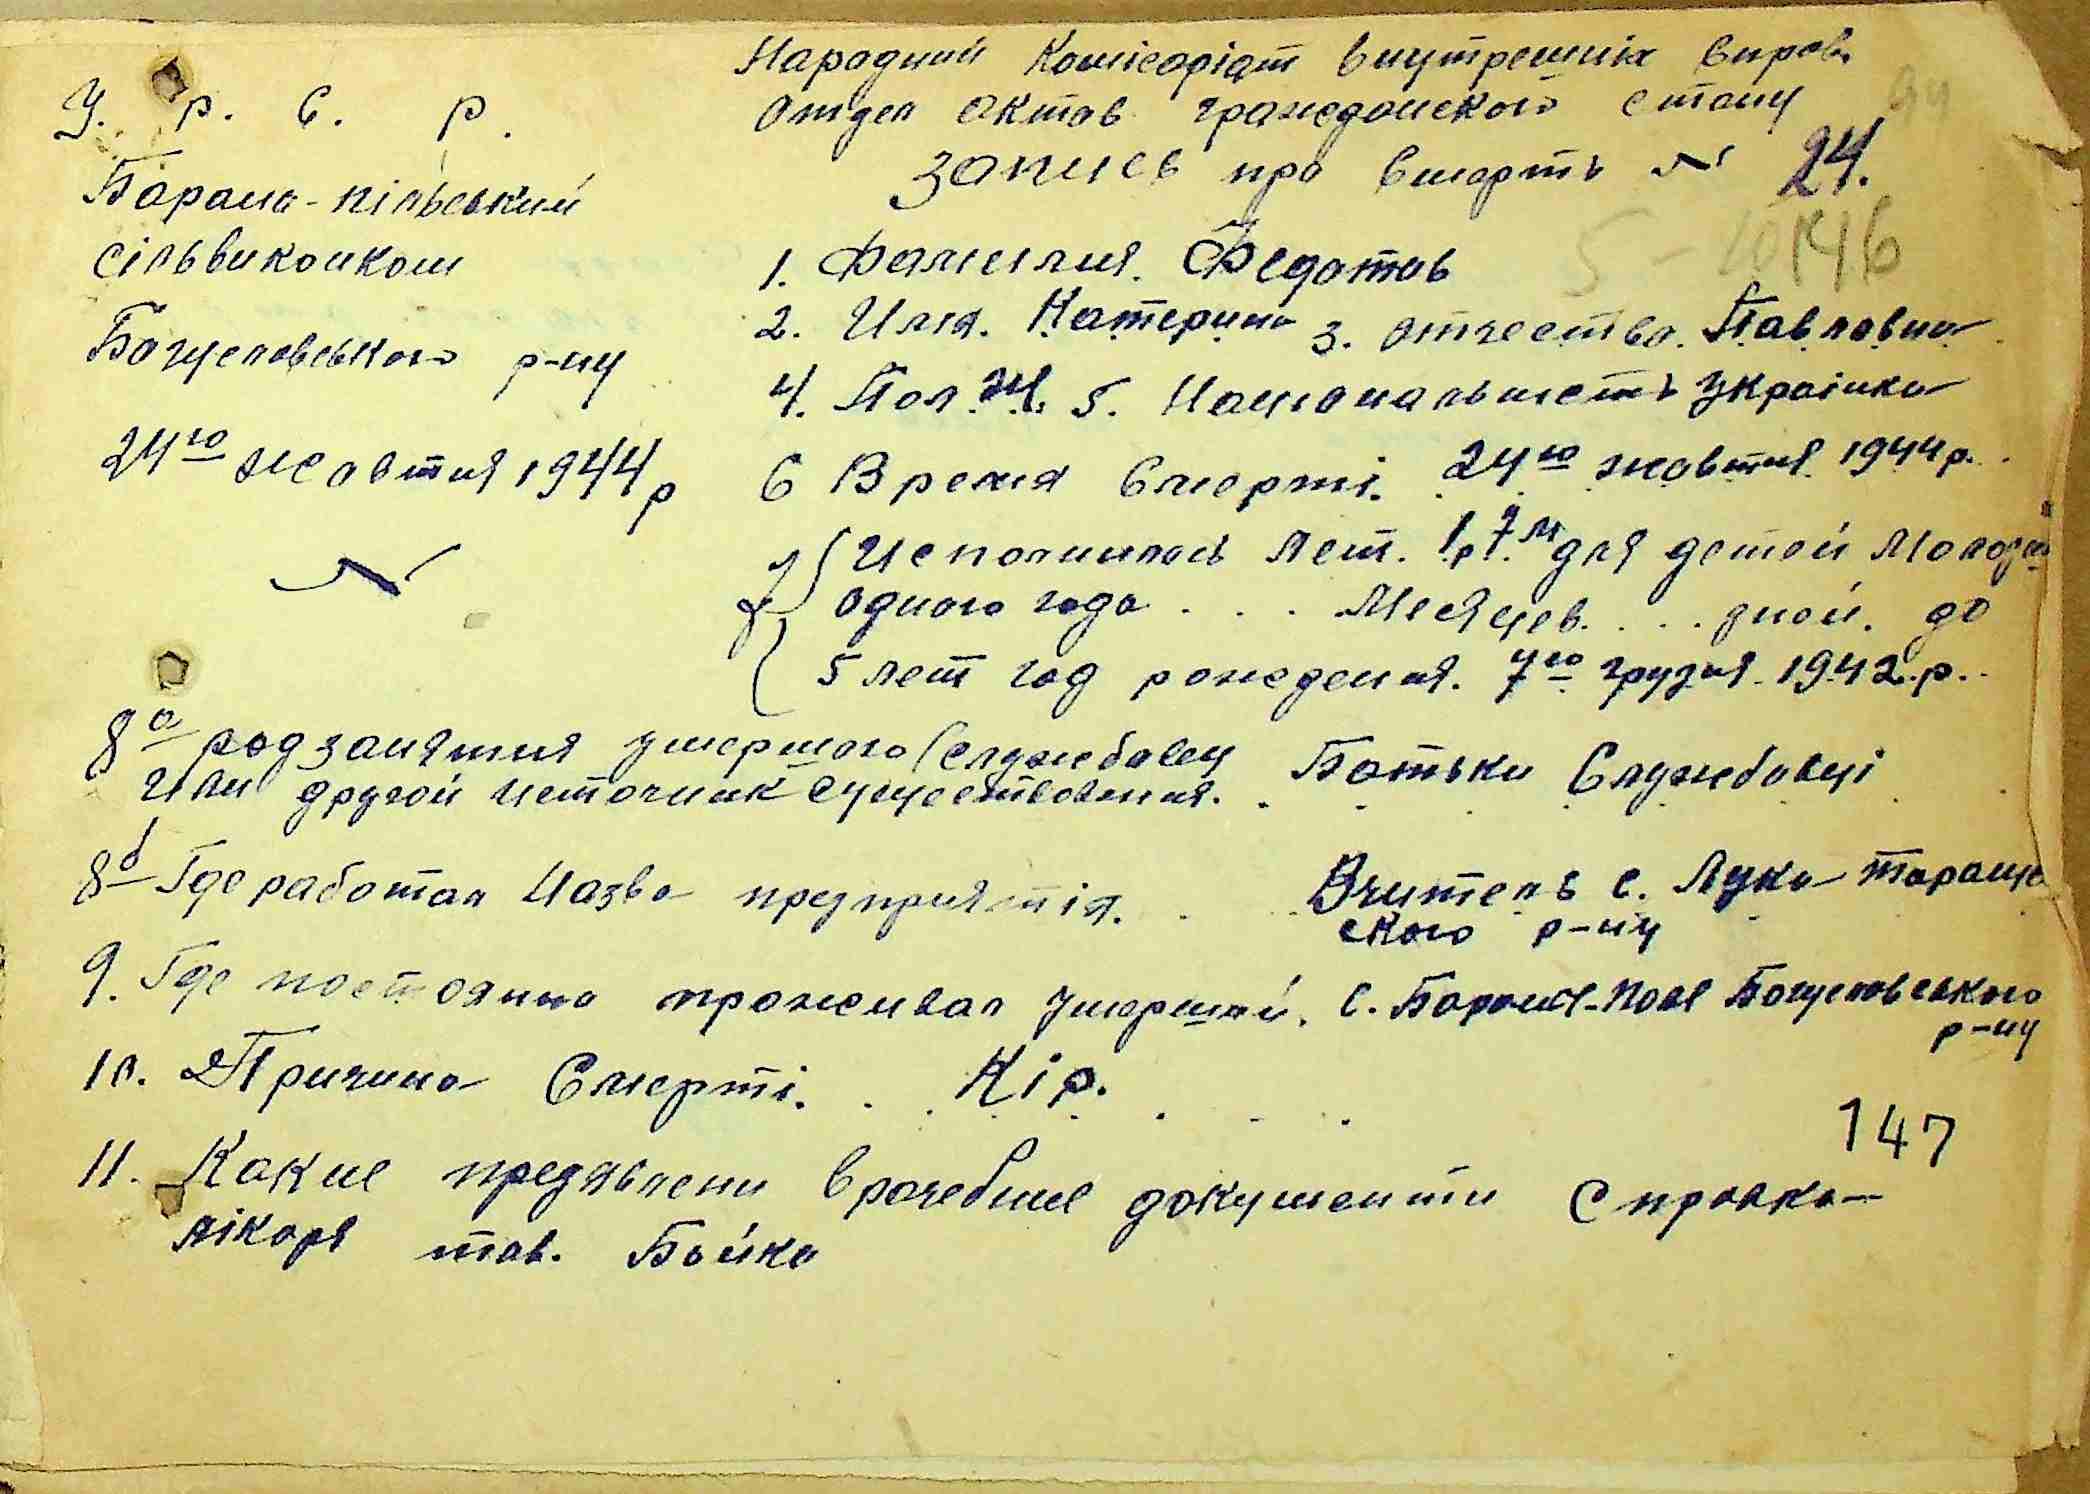 У. Р. С. Р.
Барано-пільський
сільвиконком
Богуславського р-ну
24го жовтня 1944 р
N
Народний Комісаріат внутрешніх справ.
Отдел актов гражданского стану
Запись про смерть N 24.
146
1. Фамилия. Федотов
2. Имя. Катерина 3. Отчество. Павловна
4. Пол Ж. 5. Национальность Українка
6 Время смерті. 24го жовтня 1944 р.
7 Исполнилось лет. 1р. для детей молодш
одного года . . . Месяцев. . . . дней. до
5 лет год рождения. 7го грудня. 1942 р.
8а род занятия умершого (службовец Батьки Службовці
или другой источник существования.
8б Где работал Назва предприятія. Вчитель с. Лука Тараща
ского р-ну
9. Где постоянно проживал умерший. с. Баране-Поле Богуславського
р-ну
10. Причина смерті. Кір.
147
11. Какие предявлени врачебние документи Справка
лікаря тов. Бойко